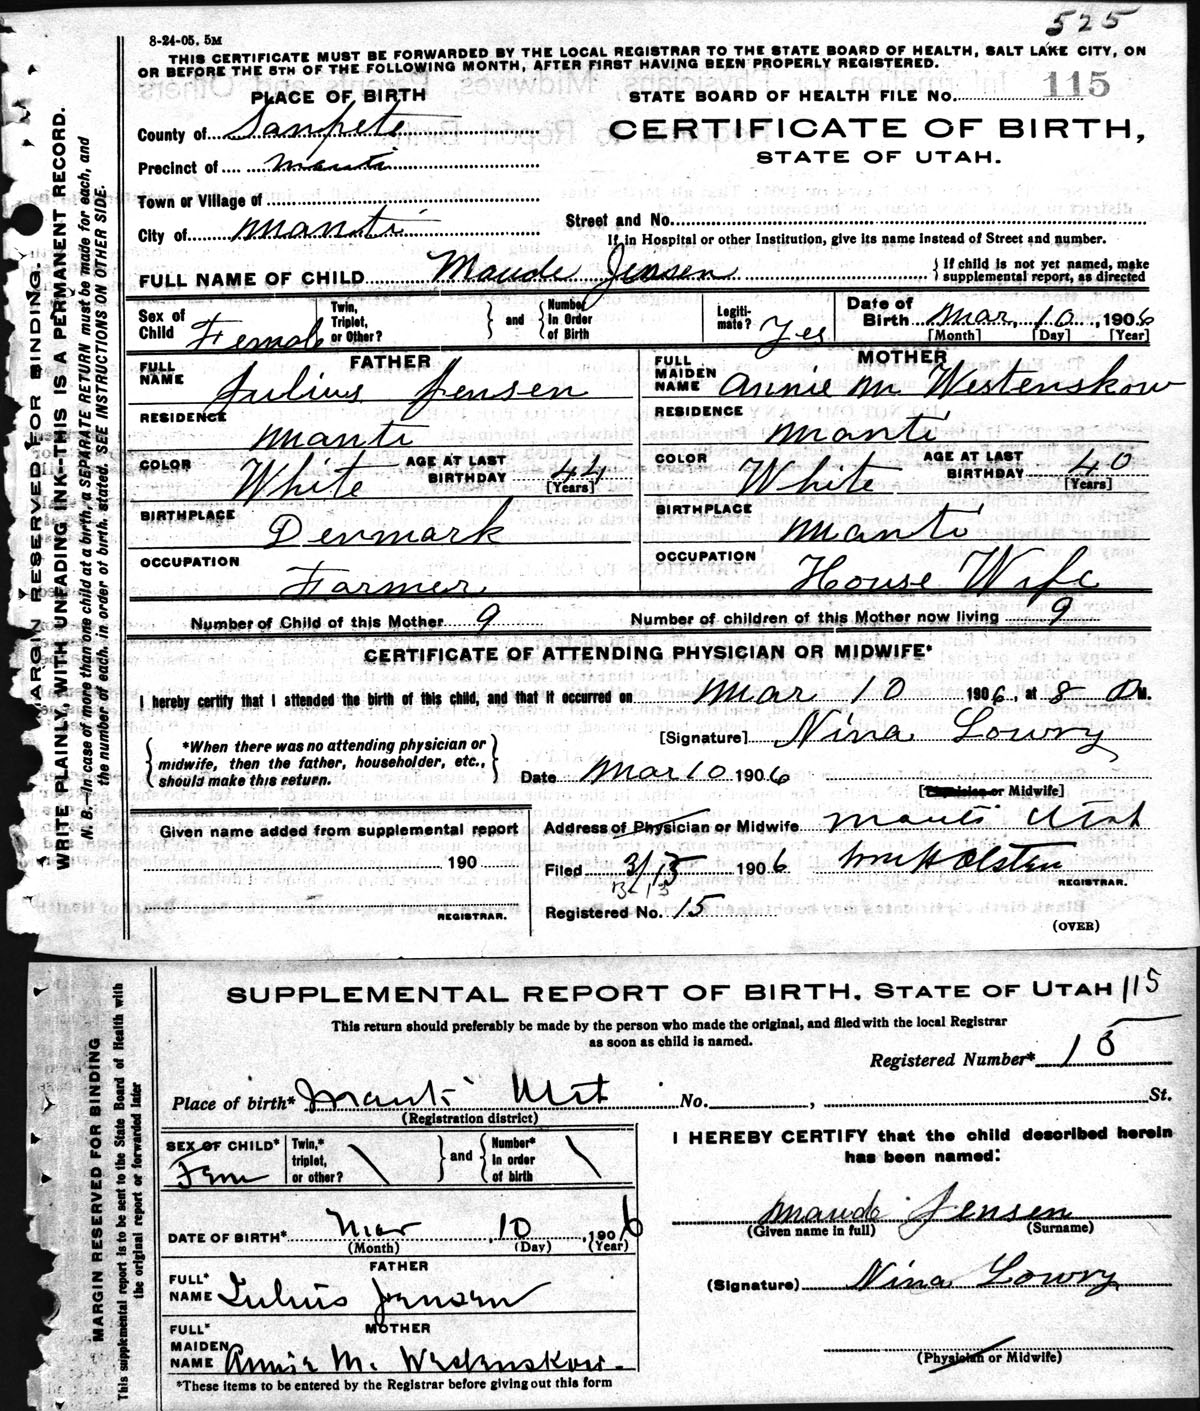 525
8-24-05, 5M
THIS CERTIFICATE MUST BE FORWARDED BY THE LOCAL REGISTRAR TO THE STATE BOARD OF HEALTH, SALT LAKE CITY, ON
OR BEFORE THE 5TH OF THE FOLLOWING MONTH, AFTER FIRST HAVING BEEN PROPERLY REGISTERED.
PLACE OF BIRTH
STATE BOARD OF HEALTH FILE No. 115
County of Sanpete
CERTIFICATE OF BIRTH,
STATE OF UTAH.
Precinct of Manti
Town or Village of
City of Manti
Street and No.
If in Hospital or other Institution, give its name instead of Street and number.
FULL NAME OF CHILD Maude Jensen { If child is not yet named, make
supplemental report, as directed
Sex of Child Female
Twin, Triplet, or Other? } and { Number in Order of Birth
Legiti-mate? Yes
Date of Birth Mar, 10, 1906
[Month] [Day] [Year]
FATHER
MOTHER
FULL NAME Julius Jensen
FULL MAIDEN NAME Annie M. Westenskow
RESIDENCE Manti
RESIDENCE Manti
COLOR White AGE AT LAST BIRTHDAY 44 [Years]
COLOR White AGE AT LAST BIRTHDAY 40 [Years]
BIRTHPLACE Denmark
BIRTHPLACE Manti
OCCUPATION Farmer
OCCUPATION House Wife
Number of Child of this Mother 9 Number of children of this Mother now living 9
CERTIFICATE OF ATTENDING PHYSICIAN OR MIDWIFE*
I hereby certify that I attended the birth of this child, and that it occurred on Mar 10 1906, at 8 M.
{ *When there was no attending physician or
midwife, then the father, householder, etc.,
should make this return. }
[Signature] Nina Lowry
Date Mar 10 1906
[Physician or Midwife]
Given name added from supplemental report
190
REGISTRAR.
Address of Physician or Midwife Manti Utah
Filed 3/13 1906 Wm H Olsten
3 13
REGISTRAR.
Registered No. 15
(OVER)
MARGIN RESERVED FOR BINDING.
WRITE PLAINLY, WITH UNFADING INK-THIS IS A PERMANENT RECORD.
N. B.—In case of more than one child at a birth, a SEPARATE RETURN must be made for each, and
the number of each, in order of birth, stated. SEE INSTRUCTIONS ON OTHER SIDE.
SUPPLEMENTAL REPORT OF BIRTH, STATE OF UTAH 115
This return should preferably be made by the person who made the original, and filed with the local Registrar
as soon as child is named.
Registered Number* 15
Place of birth* Manti Utah No. , St.
(Registration district)
SEX OF CHILD* Fem
Twin,* triplet, or other? \ } and { Number* in order of birth \
I HEREBY CERTIFY that the child described herein
has been named:
Maude Jensen
(Given name in full) (Surname)
DATE OF BIRTH* Mar, 10, 1906
(Month) (Day) (Year)
FATHER
FULL* NAME Julius Jensen
(Signature) Nina Lowry
MOTHER
FULL* MAIDEN NAME Annie M. Westenskow
(Physician or Midwife)
*These items to be entered by the Registrar before giving out this form
MARGIN RESERVED FOR BINDING
This supplemental report is to be sent to the State Board of Health with
the original report or forwarded later